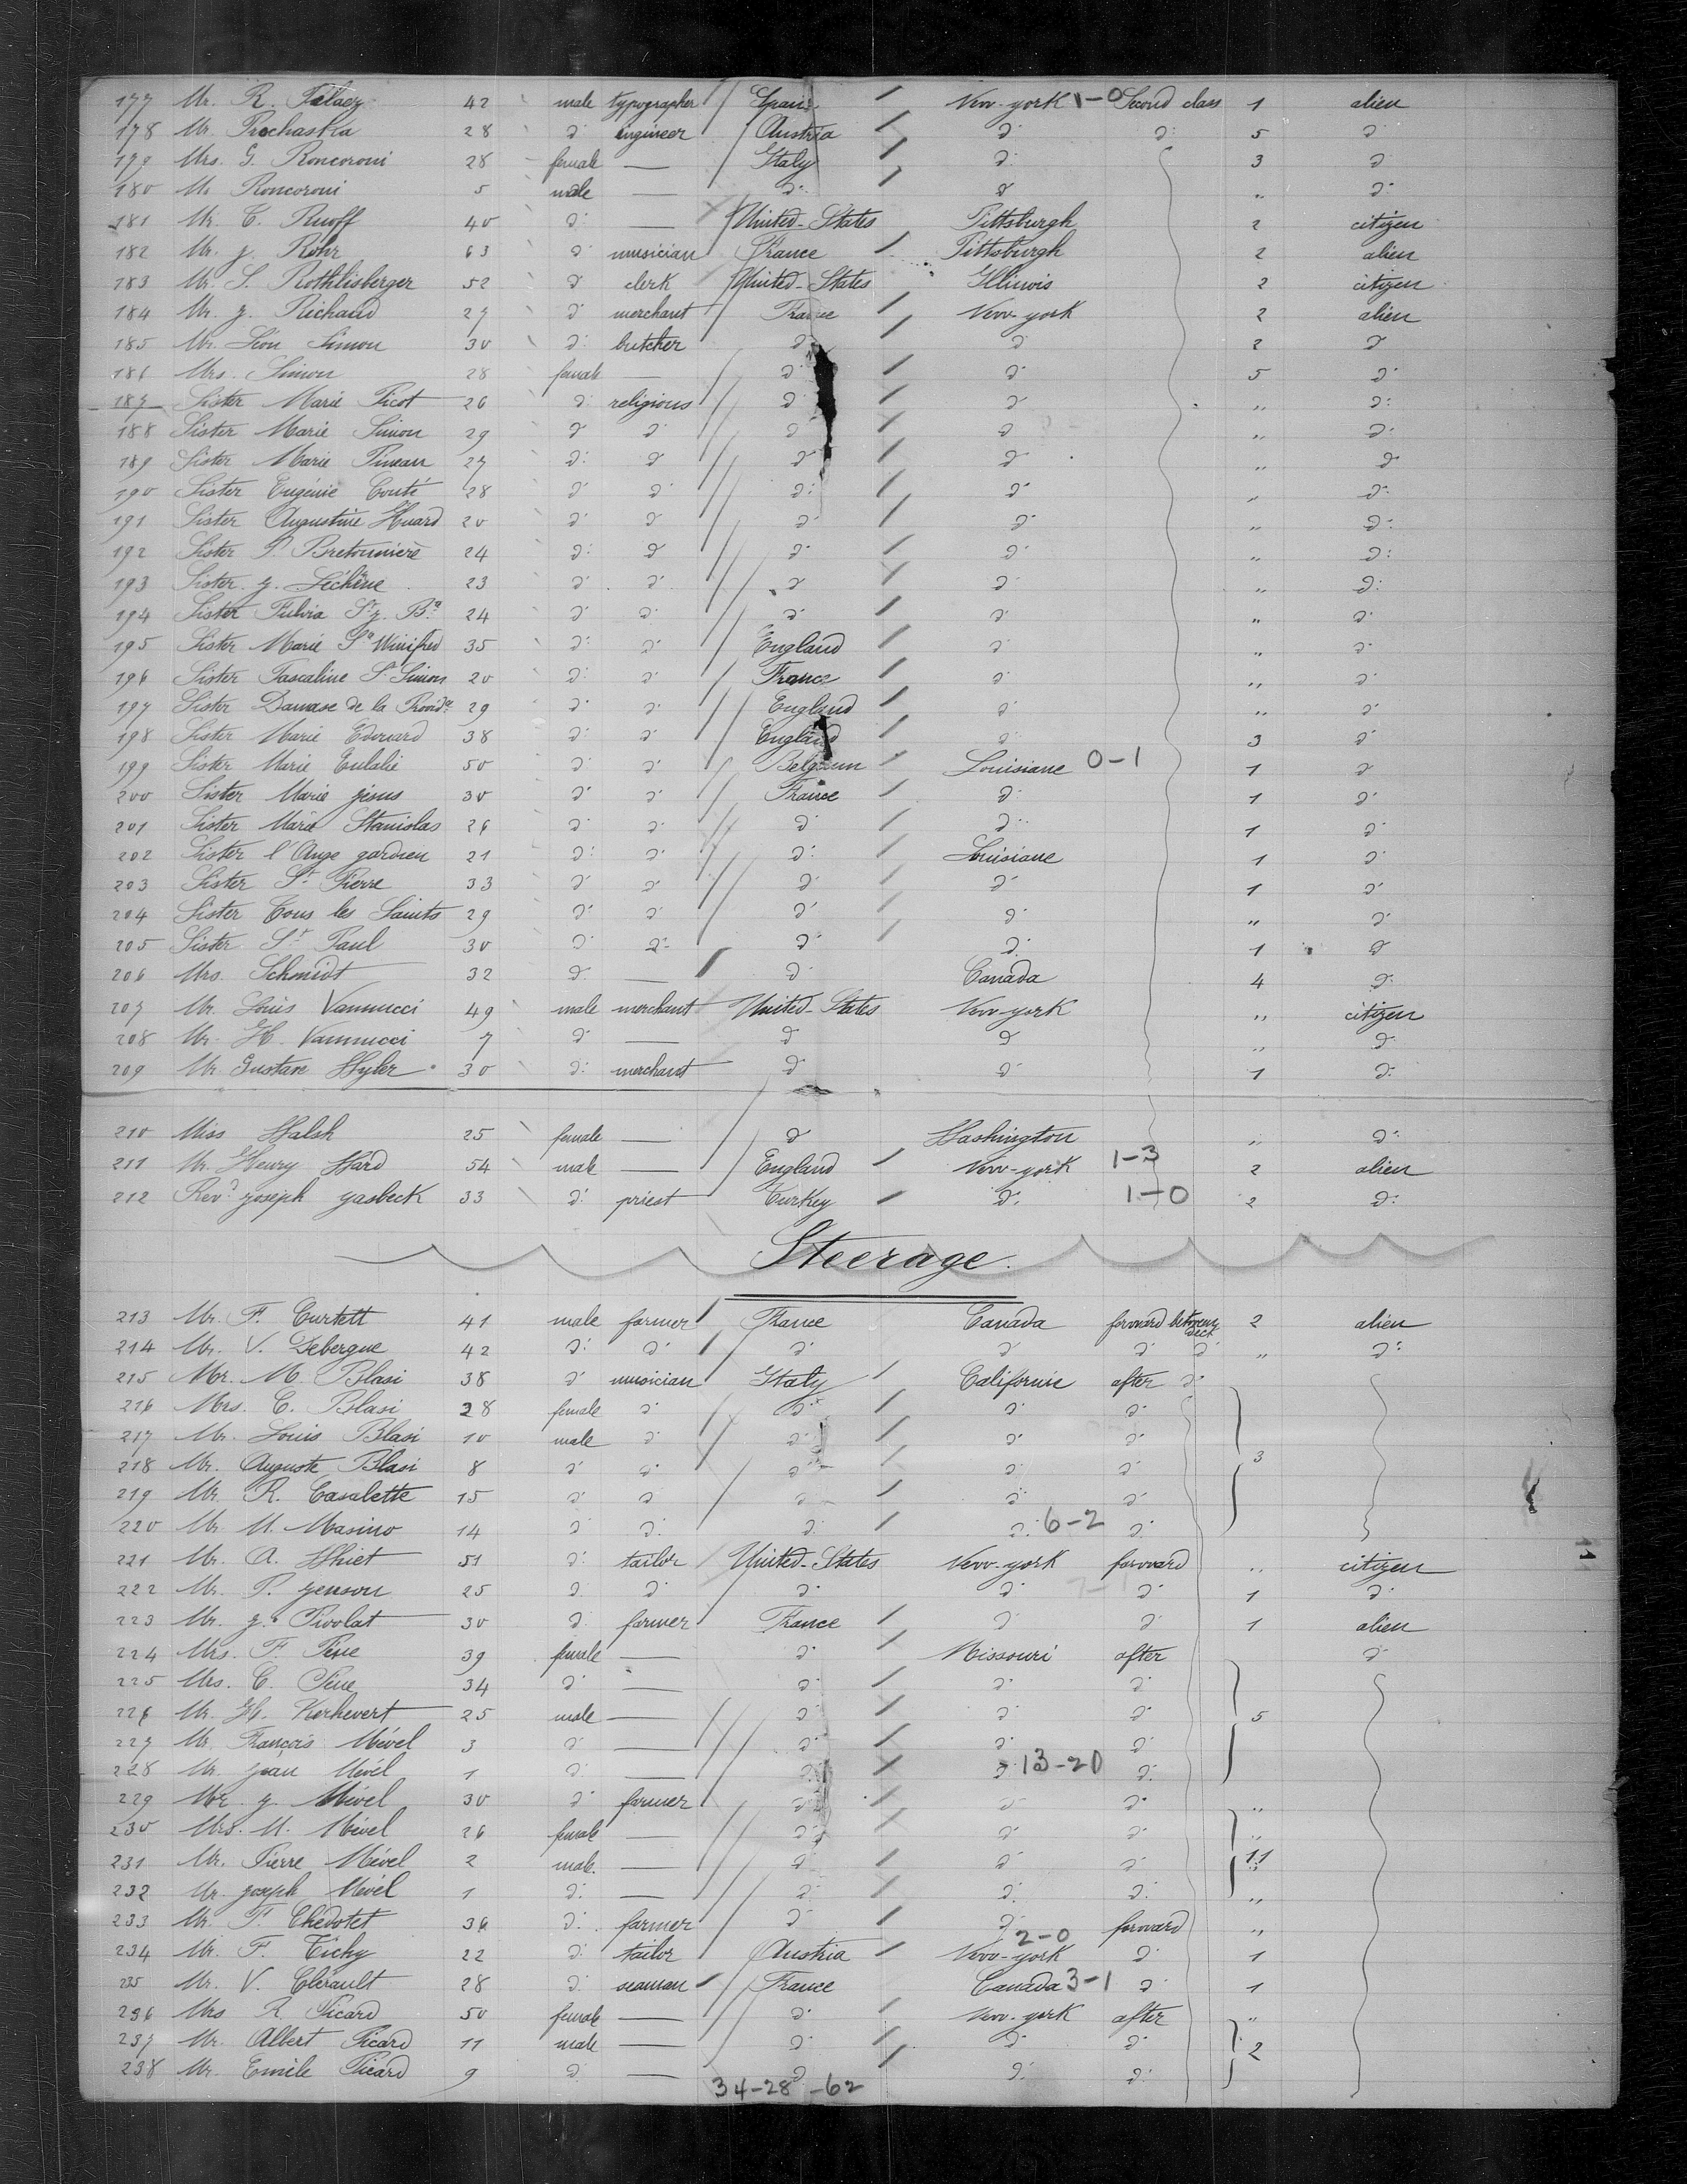 177 Mr. R. Palaez 42 male typographer Spain New-york 1-0 Second class 1 alien
178 Mr. Prochaska 28 d: engineer Austria d: d: 5 d:
179 Mrs. G. Roncoroni 28 female — Italy d: 3 d:
180 Mr Roncoroni 5 male — d: d: " d:
181 Mr. C. Ruoff 40 d: — United-States Pittsburgh 2 citizen
182 Mr. J. Rohr 63 d: musician France Pittsburgh 2 alien
183 Mr. S. Rothlisberger 52 d: clerk United-States Illinois 2 citizen
184 Mr. J. Richaud 27 d: merchant France New-york 2 alien
185 Mr. Léon Simon 30 d: butcher d: d: 2 d:
186 Mrs. Simon 28 female — d: d: 5 d:
187 Sister Marie Picot 26 d: religious d: d: " d:
188 Sister Marie Simon 29 d: d: d: d: " d:
189 Sister Marie Pineau 27 d: d: d: d: " d:
190 Sister Eugénie Conté 28 d: d: d: d: " d:
191 Sister Augustine Huard 20 d: d: d: d: " d:
192 Sister P. Bretonnière 24 d: d: d: d: " d:
193 Sister J. Léchêne 23 d: d: d: d: " d:
194 Sister Fulvia St J. Bte 24 d: d: d: d: " d:
195 Sister Marie Ste Winifred 35 d: d: England d: " d:
196 Sister Pascaline St Simon 20 d: d: France d: " d:
197 Sister Damase de la Provide 29 d: d: England d: " d:
198 Sister Marie Edouard 38 d: d: England d: 3 d:
199 Sister Marie Eulalie 50 d: d: Belgium Louisiane 0-1 1 d:
200 Sister Marie Jésus 30 d: d: France d: 1 d:
201 Sister Marie Stanislas 26 d: d: d: d: 1 d:
202 Sister l'Ange gardien 21 d: d: d: Louisiane 1 d:
203 Sister St. Pierre 33 d: d: d: d: 1 d:
204 Sister Tous les Saints 29 d: d: d: d: " d:
205 Sister St. Paul 30 d: d: d: d: 1 d:
206 Mrs. Schmidt 32 d: — d: Canada 4 d:
207 Mr. Louis Vannucci 49 male merchant United-States New-york " citizen
208 Mr. H. Vannucci 7 d: — d: d: " d:
209 Mr Gustave Wyler 30 d: merchant d: d: 1 d:
210 Miss Walsh 25 female — d: Washington " d:
211 Mr. Henry Ward 54 male — England New-york 1-3 2 alien
212 Revd Joseph Yasbeck 33 d: priest Turkey d: 1-0 2 d:
Steerage.
213 Mr. F. Curtett 41 male farmer France Canada forward between deck 2 alien
214 Mr. V. Debergue 42 d: d: d: d: d: d: " d:
215 Mr. M. Blasi 38 d: musician Italy Californie after d:
216 Mrs. C. Blasi 28 female d: d: d: d:
217 Mr. Louis Blasi 10 male d: d: d: d:
218 Mr. Auguste Blasi 8 d: d: d: d: d: 3
219 Mr R. Casalette 15 d: d: d: d: d:
220 Mr M. Masino 14 d: d: d: d: 6-2 d:
221 Mr. A. Whiet 51 d: tailor United-States New-york forward " citizen
222 Mr. P. Jenson 25 d: d: d: d: d: 1 d:
223 Mr. J. Pivolat 30 d: farmer France d: d: 1 alien
224 Mrs. F. Péne 39 female — d: Missouri after d:
225 Mrs. C. Péne 34 d: — d: d: d:
226 Mr. H. Kerhevert 25 male — d: d: d: 5
227 Mr. François Mével 3 d: — d: d: d:
228 Mr. Jean Mével 1 d: — d: d: 13-20 d:
229 Mr. J. Mével 30 d: farmer d: d: d: "
230 Mrs. M. Mével 26 female — d: d: d: "
231 Mr. Pierre Mével 2 male. — d: d: d: 11
232 Mr. Joseph Mével 1 d: — d: d: d: "
233 Mr. F. Chédotet 36 d: farmer d: d: forward "
234 Mr. F. Tichy 22 d: tailor Austria 2-0 New-york d: 1
235 Mr. V. Clérault 28 d: seaman France Canada 3-1 d: 1
236 Mrs R. Picard 50 female — d: New-york after "
237 Mr. Albert Picard 11 male — d: d: d: 2
238 Mr. Emile Picard 9 d: — d: d: d:
34-28-62